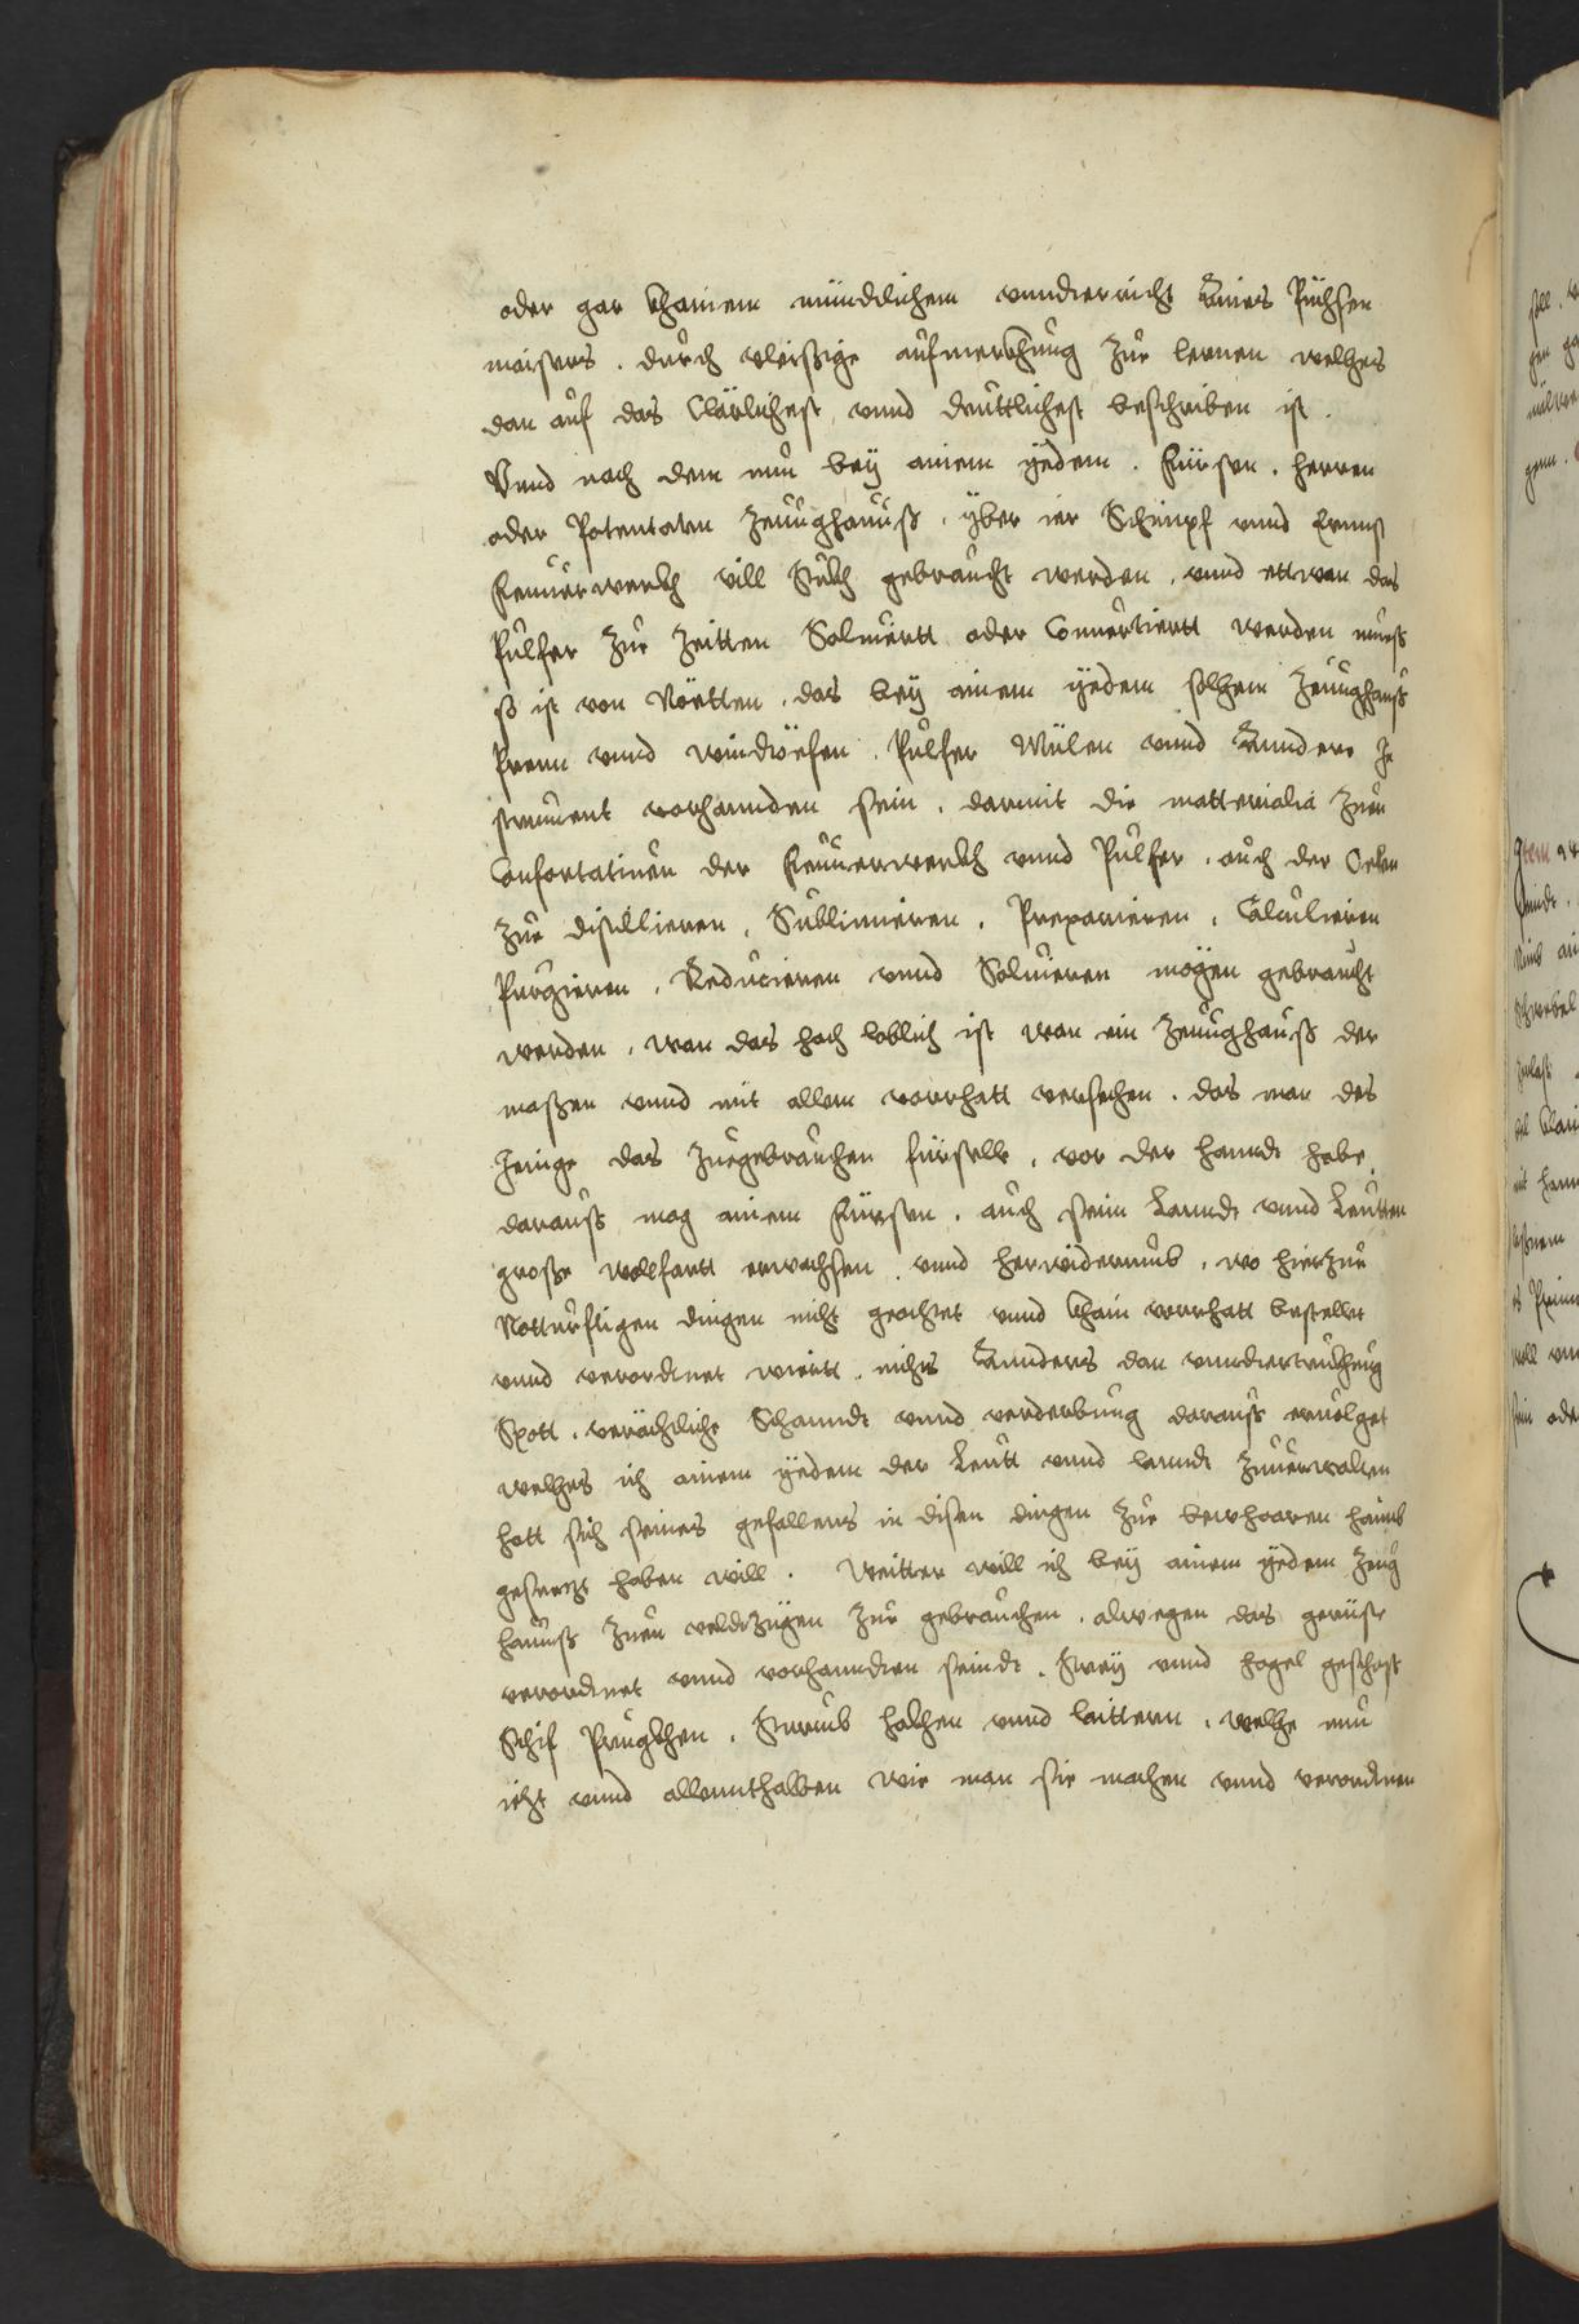 oder gar khainem mündlichem vnndterricht Aines Püchsen
maisters . durch vleißige aufmerkhung zue lernen welches
dan auf das Clärlichest vnnd deuttlichest beschriben ist .
Vnnd nach dem nun bey ainem yedem . Fürsten . herren
oder Potentaten Zeuughauuß . yber ier Schimpf vnnd Ernnst
Feuuerwerkh vill Stukh gebraucht werden . vnnd ettwan das
Pulfer zue Zeitten Soluiertt oder Conuertiertt werden mueß
so ist von Nöetten . das bey ainem yedem solhem Zeuughauß
Prenn vnnd windtöfen . Pulfer Mülen vnnd Anndere In
strument vorhannden sein . darmit die matterialia zuen
Confortatiuen der Feuuerwerkh vnnd Pulfer . auch der Oelen
zue distillieren . Sublimieren . Preparieren . Calculieren
Purgieren . Reducieren vnnd Soluieren mögen gebraucht
werden . wan das hoch loblich ist wan ein Zeuughauß der
maßen vnnd mit allem vorrhatt versechen . das man das
Jeinige das zuegebrauchen fürfellt . vor der hanndt habe .
darauß mag ainem Fürsten . auch sein Lanndt vnnd Leutten
große wolfartt erwachsen . vnnd herwiderumb . wo hierzue
Notturftigen dingen nicht geachtet vnnd khain vorrhatt bestellet
vnnd verordtnet wiertt . nichts Annders dan vnndtertrukhung
Spott . verächtliche Schanndt vnnd verderbung darauß eruolget
welches ich ainem yedem der Leutt vnnd lanndt zuuerwalten
hatt sich seines gefallens in disen dingen zue bewharen haimb
gesterzt haben will . Weitter will ich bey ainem yedem Zeug
hauuß zuen veldtzügen zue gebrauchen . alwegen das gerüste
verordtnet vnnd vorhanndten seindt . Strey vnnd hagel geschoß
Schif Prugkhen . Sturmb hakhen vnnd laittern . welche nun
iezt vnnd allennthalben wie man sie machen vnnd verordtnen